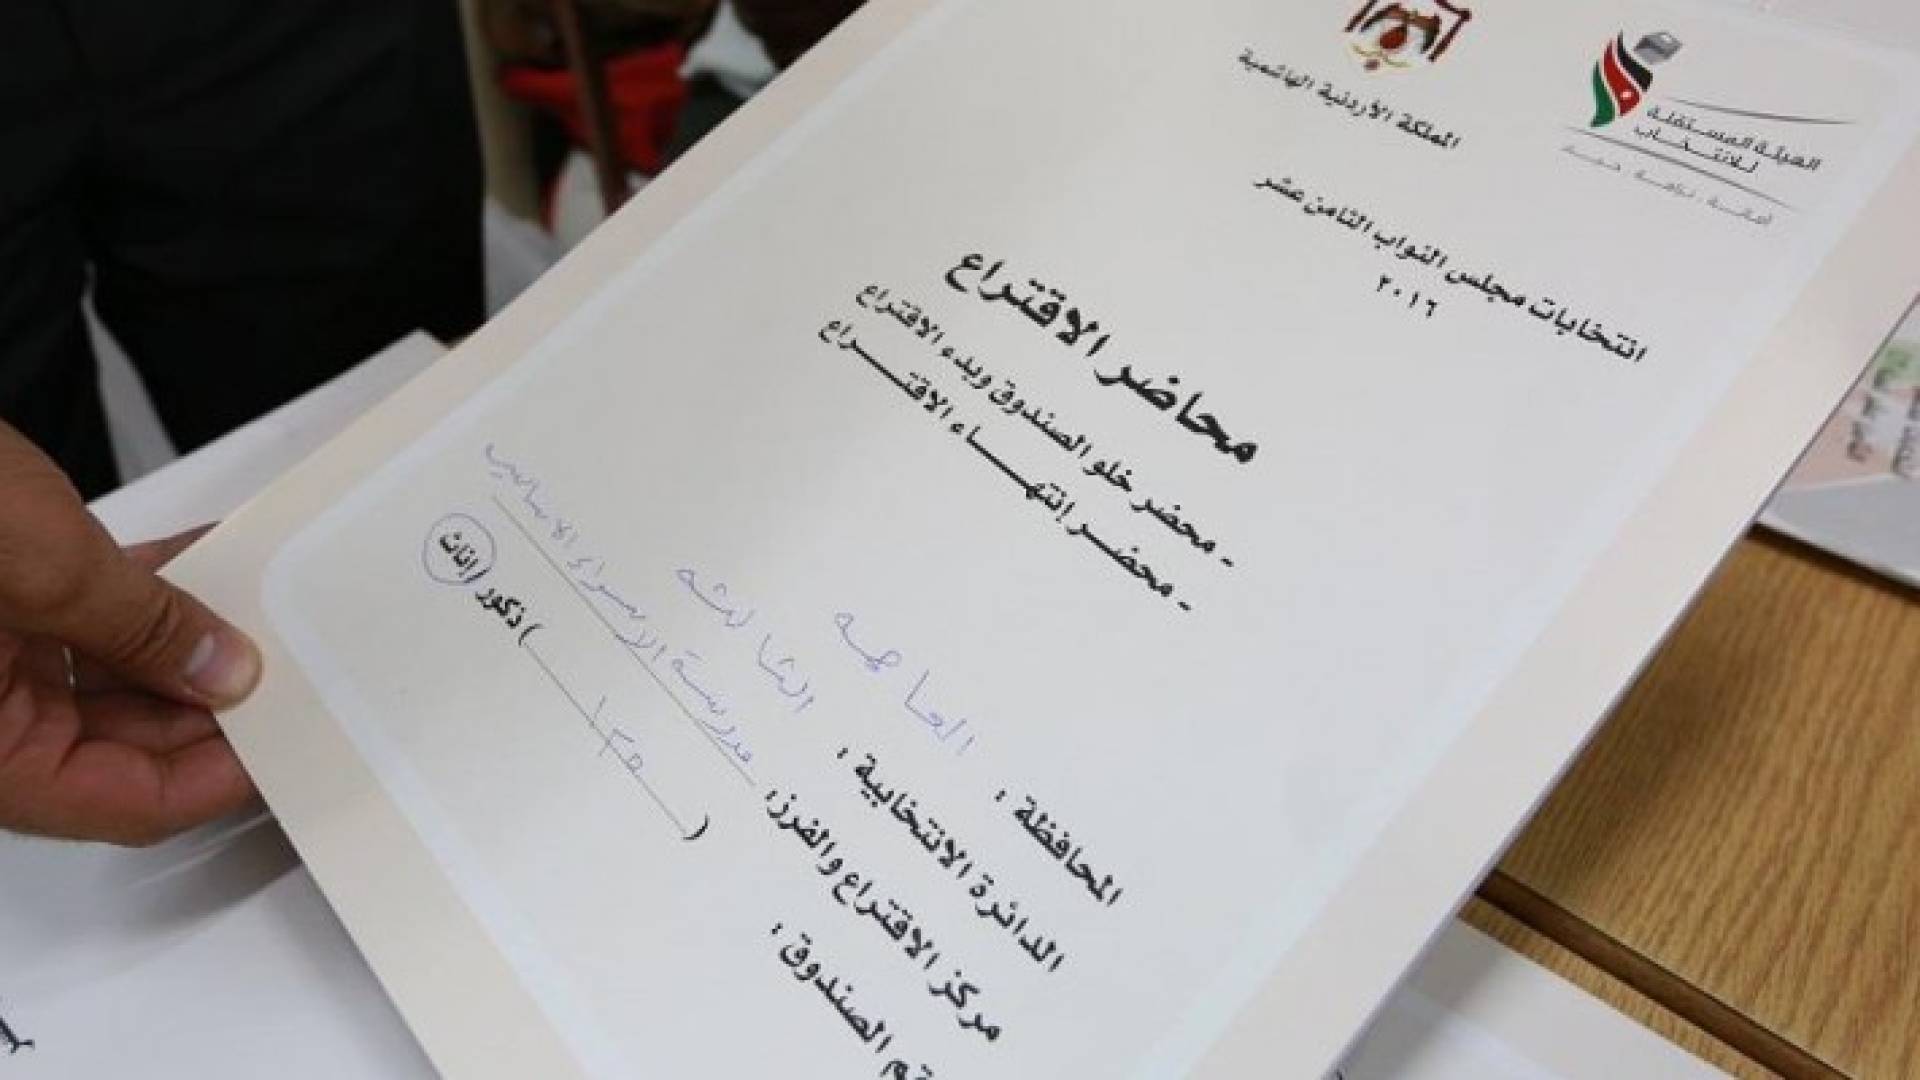 المملكة الأردنية الهاشمية
الهيئة المستقلة
للانتخاب
انتخابات مجلس النواب الثامن عشر
٢٠١٦
محاضر الاقتراع
- محضر خلو الصندوق وبدء الاقتراع
- محضر إنتهاء الاقتراع
المحافظة : العاصمه
الدائرة الانتخابية : الثالثه
مركز الاقتراع والفرز: مدرسة الاسراء الاساسيه
الصندوق : ( ١٣٥ ) ذكور / إناث